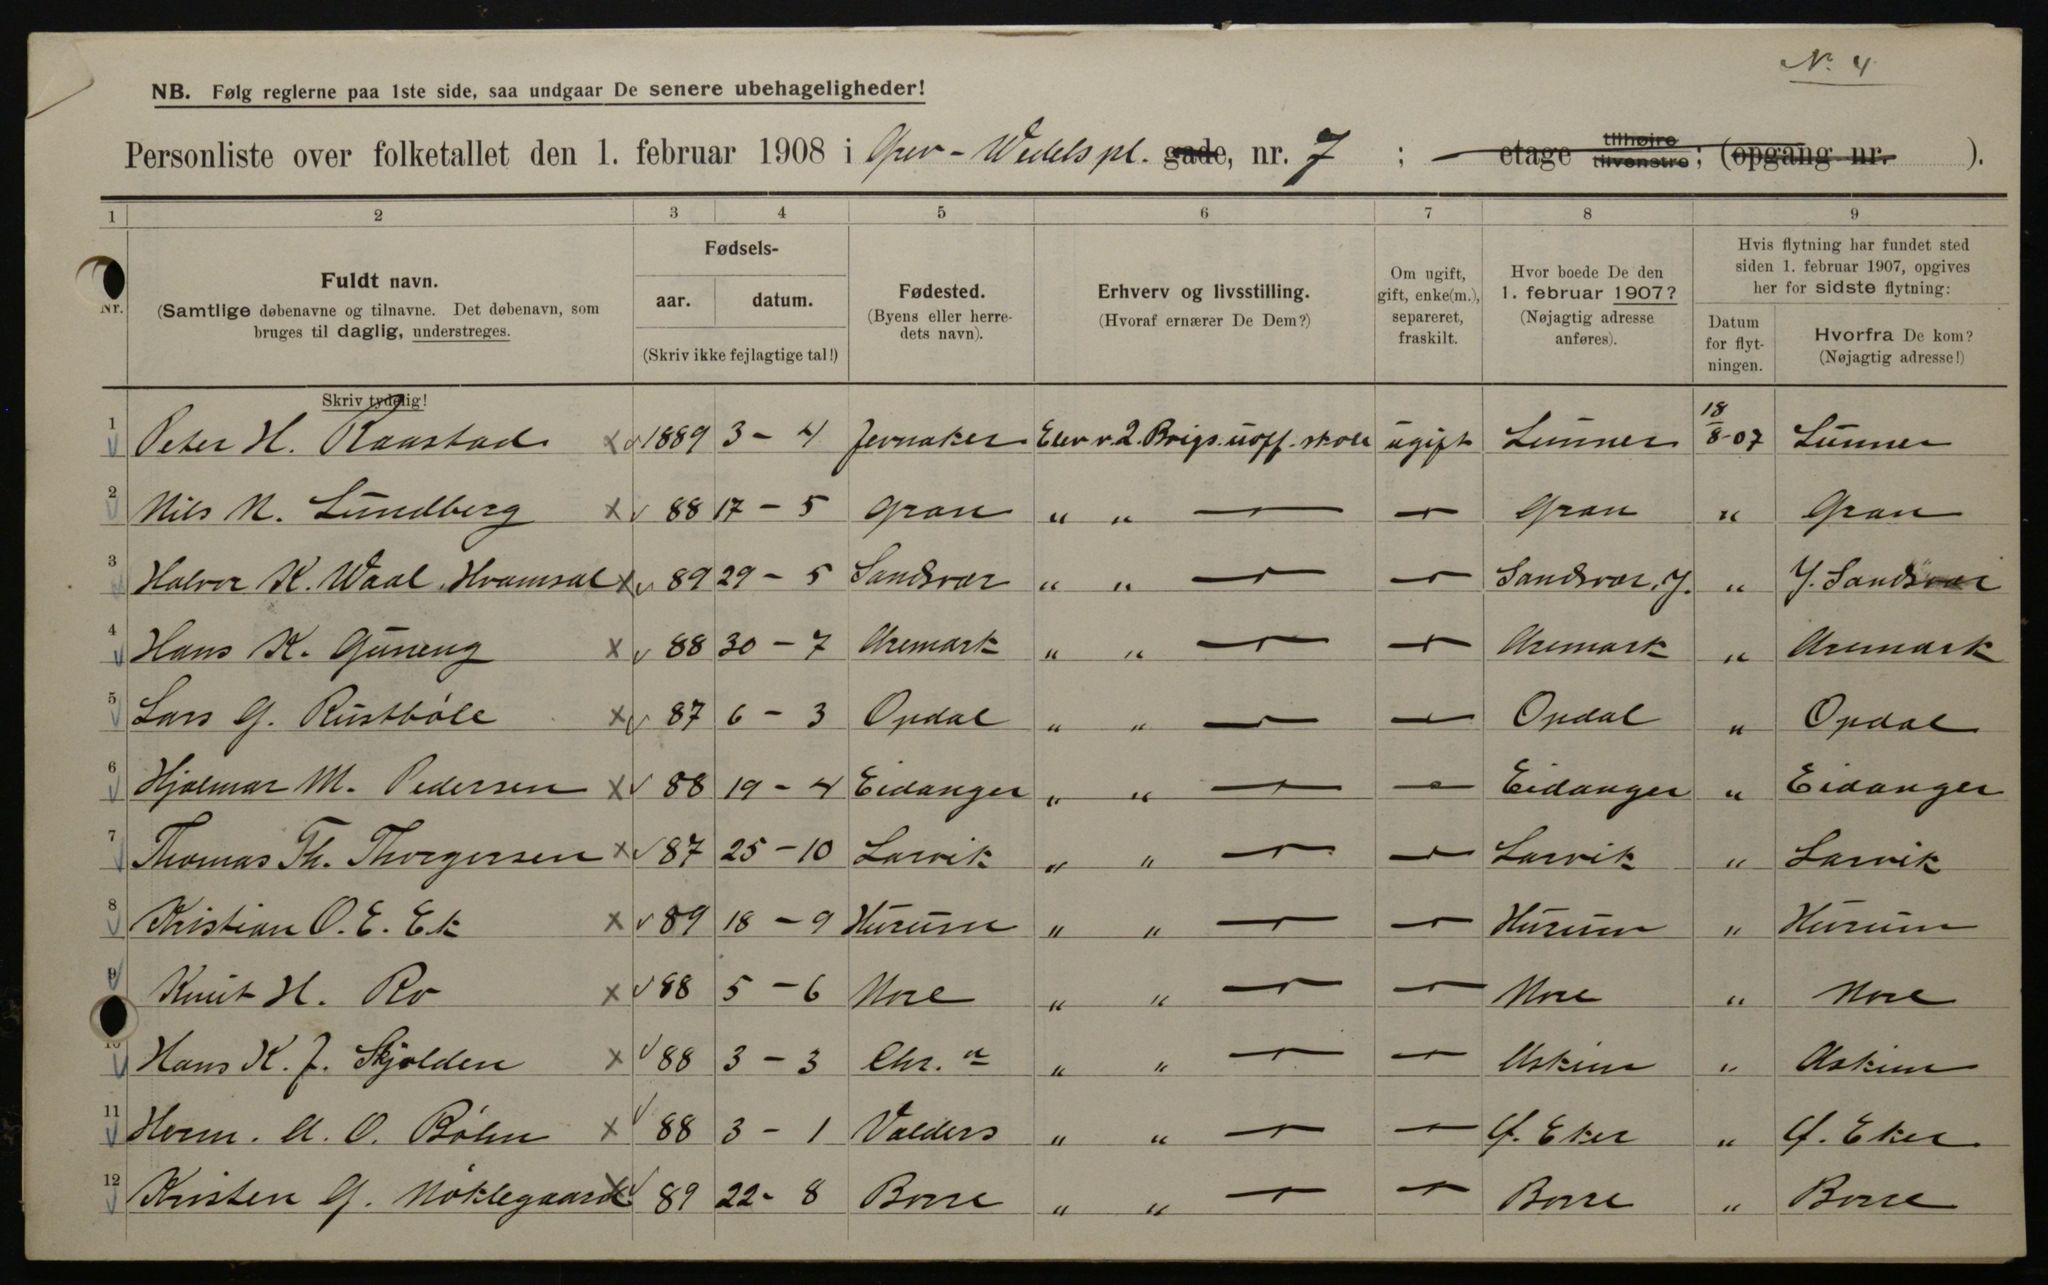 No. 4
NB. Følg reglerne paa 1ste side, saa undgaar De senere ubehageligheder!
Personliste over folketallet den 1. februar 1908 i Grev-Wedelspl. gade, nr. 7 ; etage tilhøire tilvenstre; (opgang nr. ).
1 2 3 4 5 6 7 8 9
Nr.
Fuldt navn.
(Samtlige døbenavne og tilnavne. Det døbenavn, som
bruges til daglig, understreges.
Skriv tydelig!
Fødsels-
aar. datum.
(Skriv ikke fejlagtige tal!)
Fødested.
(Byens eller herre-
dets navn).
Erhverv og livsstilling.
(Hvoraf ernærer De Dem?)
Om ugift,
gift, enke(m.),
separeret,
fraskilt.
Hvor boede De den
1. februar 1907?
(Nøjagtig adresse
anføres).
Hvis flytning har fundet sted
siden 1. februar 1907, opgives
her for sidste flytning:
Datum
for flyt-
ningen.
Hvorfra De kom?
(Nøjagtig adresse!)
1 Peter H. Raastad 1889 3-4 Jevnaker Elev v. 2. Brigs. uoff. skole ugift Lunner 18/8-07 Lunner
2 Nils N. Lundberg 88 17-5 Gran " " — — Gran " Gran
3 Halvor K. Waal Hvamsal 89 29-5 Sandsvær " " — — Sandsvær, Y. " Y. Sandsvær
4 Hans K. Guneng 88 30-7 Aremark " " — — Aremark " Aremark
5 Lars G. Rustbøle 87 6-3 Opdal " " — — Opdal " Opdal
6 Hjalmar M. Pedersen 88 19-4 Eidanger " " — — Eidanger " Eidanger
7 Thomas Th. Thorgersen 87 25-10 Larvik " " — — Larvik " Larvik
8 Kristian O. E. Ek 89 18-9 Hurum " " — — Hurum " Hurum
9 Knut H. Ro 88 5-6 Nore " " — — Nore " Nore
10 Hans K. J. Skjolden 88 3-3 Chr.a " " — — Askim " Askim
11 Herm. A. O. Bøhn 88 3-1 Valders " " — — Ø. Eker " Ø. Eker
12 Kristen G. Nøklegaard 89 22-8 Borre " " — — Borre " Borre